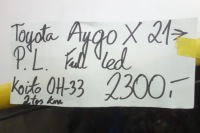 Toyota Aygo X 21→
P.L. Full led
Koito OH-33 2300.-